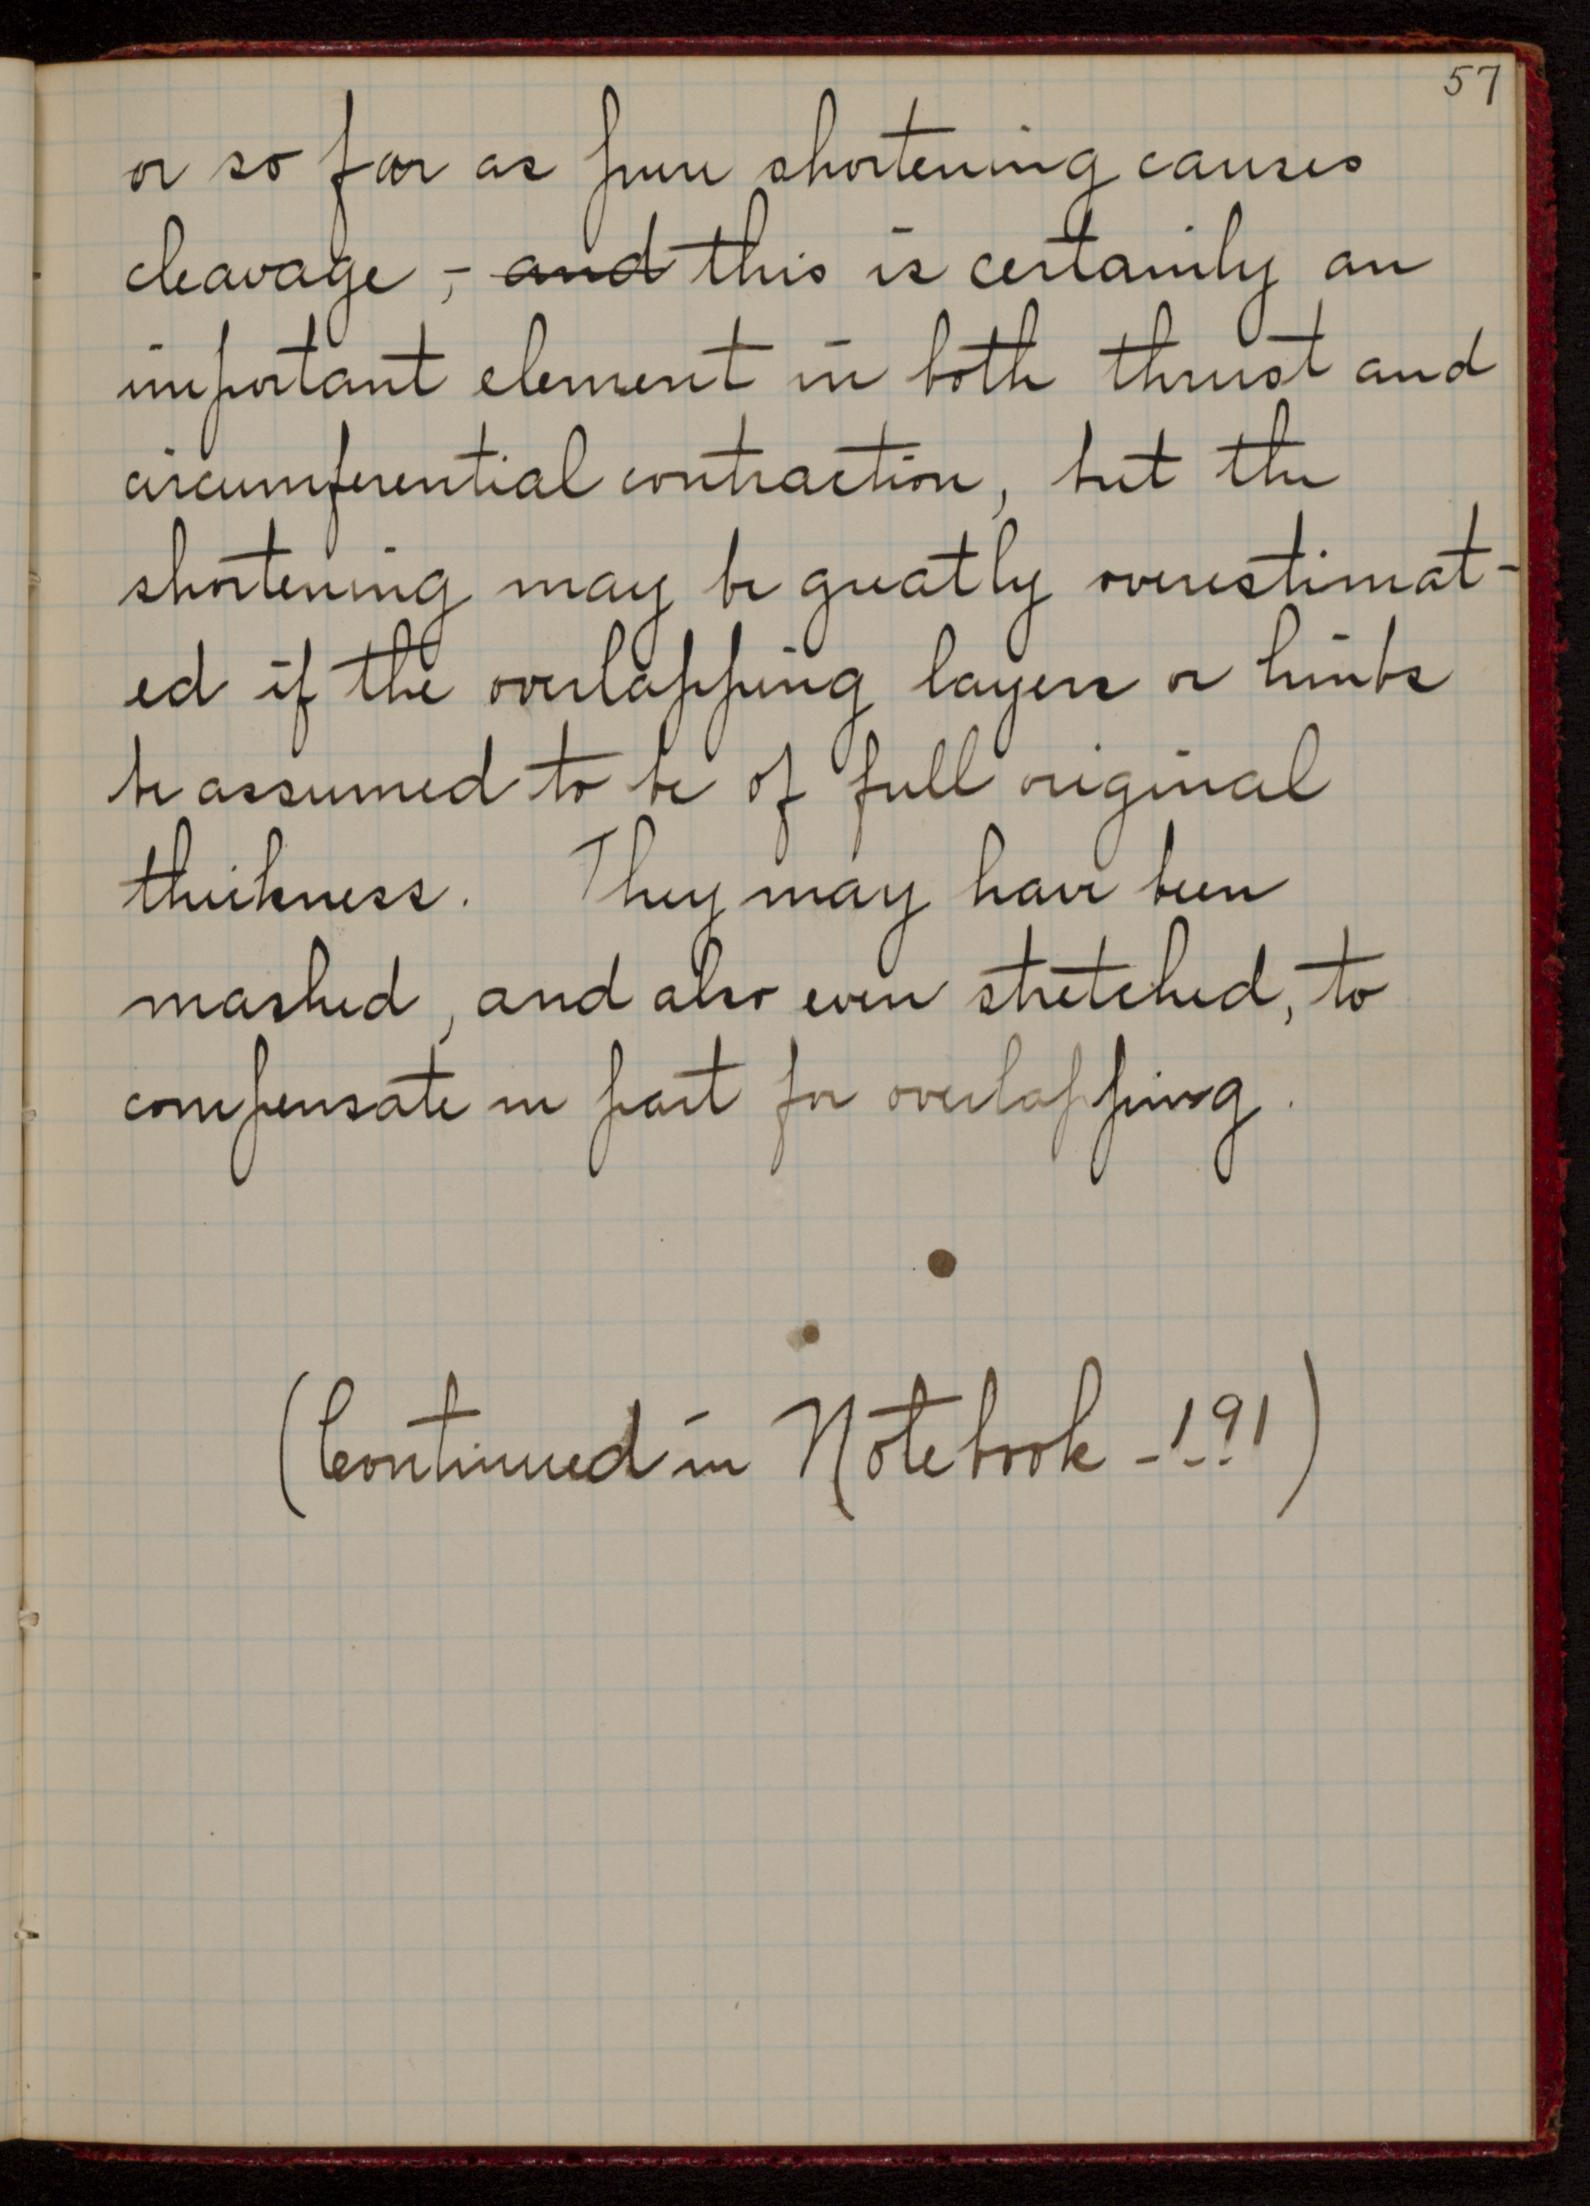 57
or so far as pure shortening causes
cleavage; - and this is certainly an
important element in both thrust and
circumferential contraction, but the
shortening may be greatly overestimat-
ed if the overlapping layers or limbs
be assumed to be of full original
thickness. They may have been
mashed, and also even stretched, to
compensate in part for overlapping.
(Continued in Notebook 191)